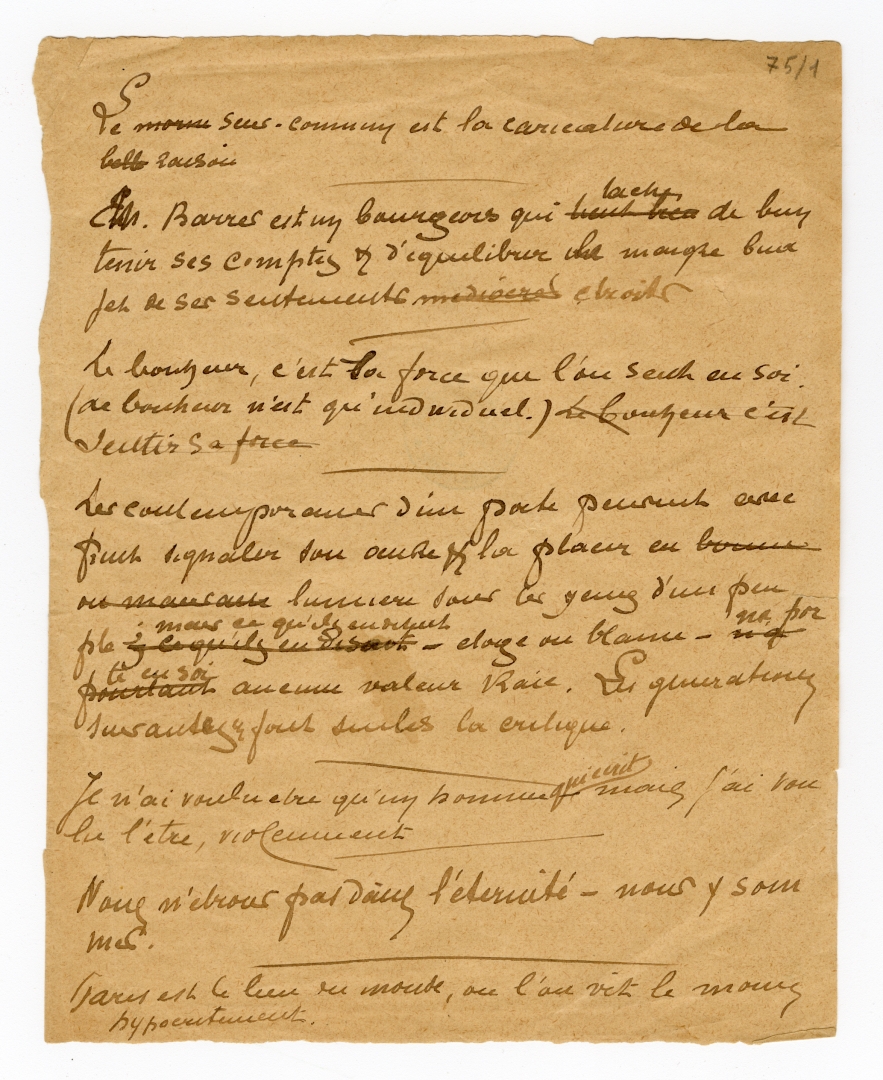 75/1
Le morne sens-commun est la caricature de la
belle raison
M. Barres est un bourgeois qui tache
de bien
tenir ses comptes & d'équilibrer le maigre bud
jet de ses sentements mediocres etroits
Le bonheur, c'est la force que l'on sent en soi.
(de bonheur n'est qu'individuel.) Le bonheur c'est
sentir sa force
Les contemporanes d'un poete peuvent avec
fruit signaler son œuvre & la placer en bonne
ou mauvaise lumiere sous les yeux d'un peu
mais ce qu'ils en disent
ple & ce qu'ils en disent - eloge ou blame - n'a
na por
té en soi
pourtant aucune valeur vraie. Les generations
suivantes font seules la critique.
Je n'ai voulu etre qu'un homme qui écrit mais j'ai vou
lu l'être, violemment
Nous n'etrons pas dans l'éternité - nous y som
mes.
Paris est le lieu du monde, ou l'on vit le moins
hypocritement.